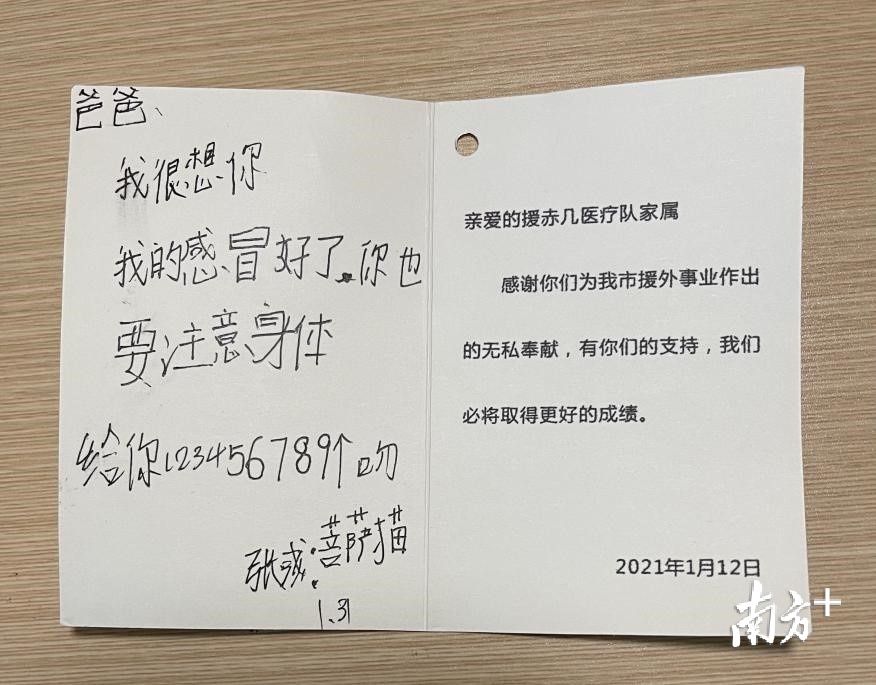 爸爸、
我很想你
我的感冒好了。你也
要注意身体
给你123456789个吻
张彧:菩萨猫
1.31
亲爱的援赤几医疗队家属
感谢你们为我市援外事业作出
的无私奉献，有你们的支持，我们
必将取得更好的成绩。
2021年1月12日
南方+